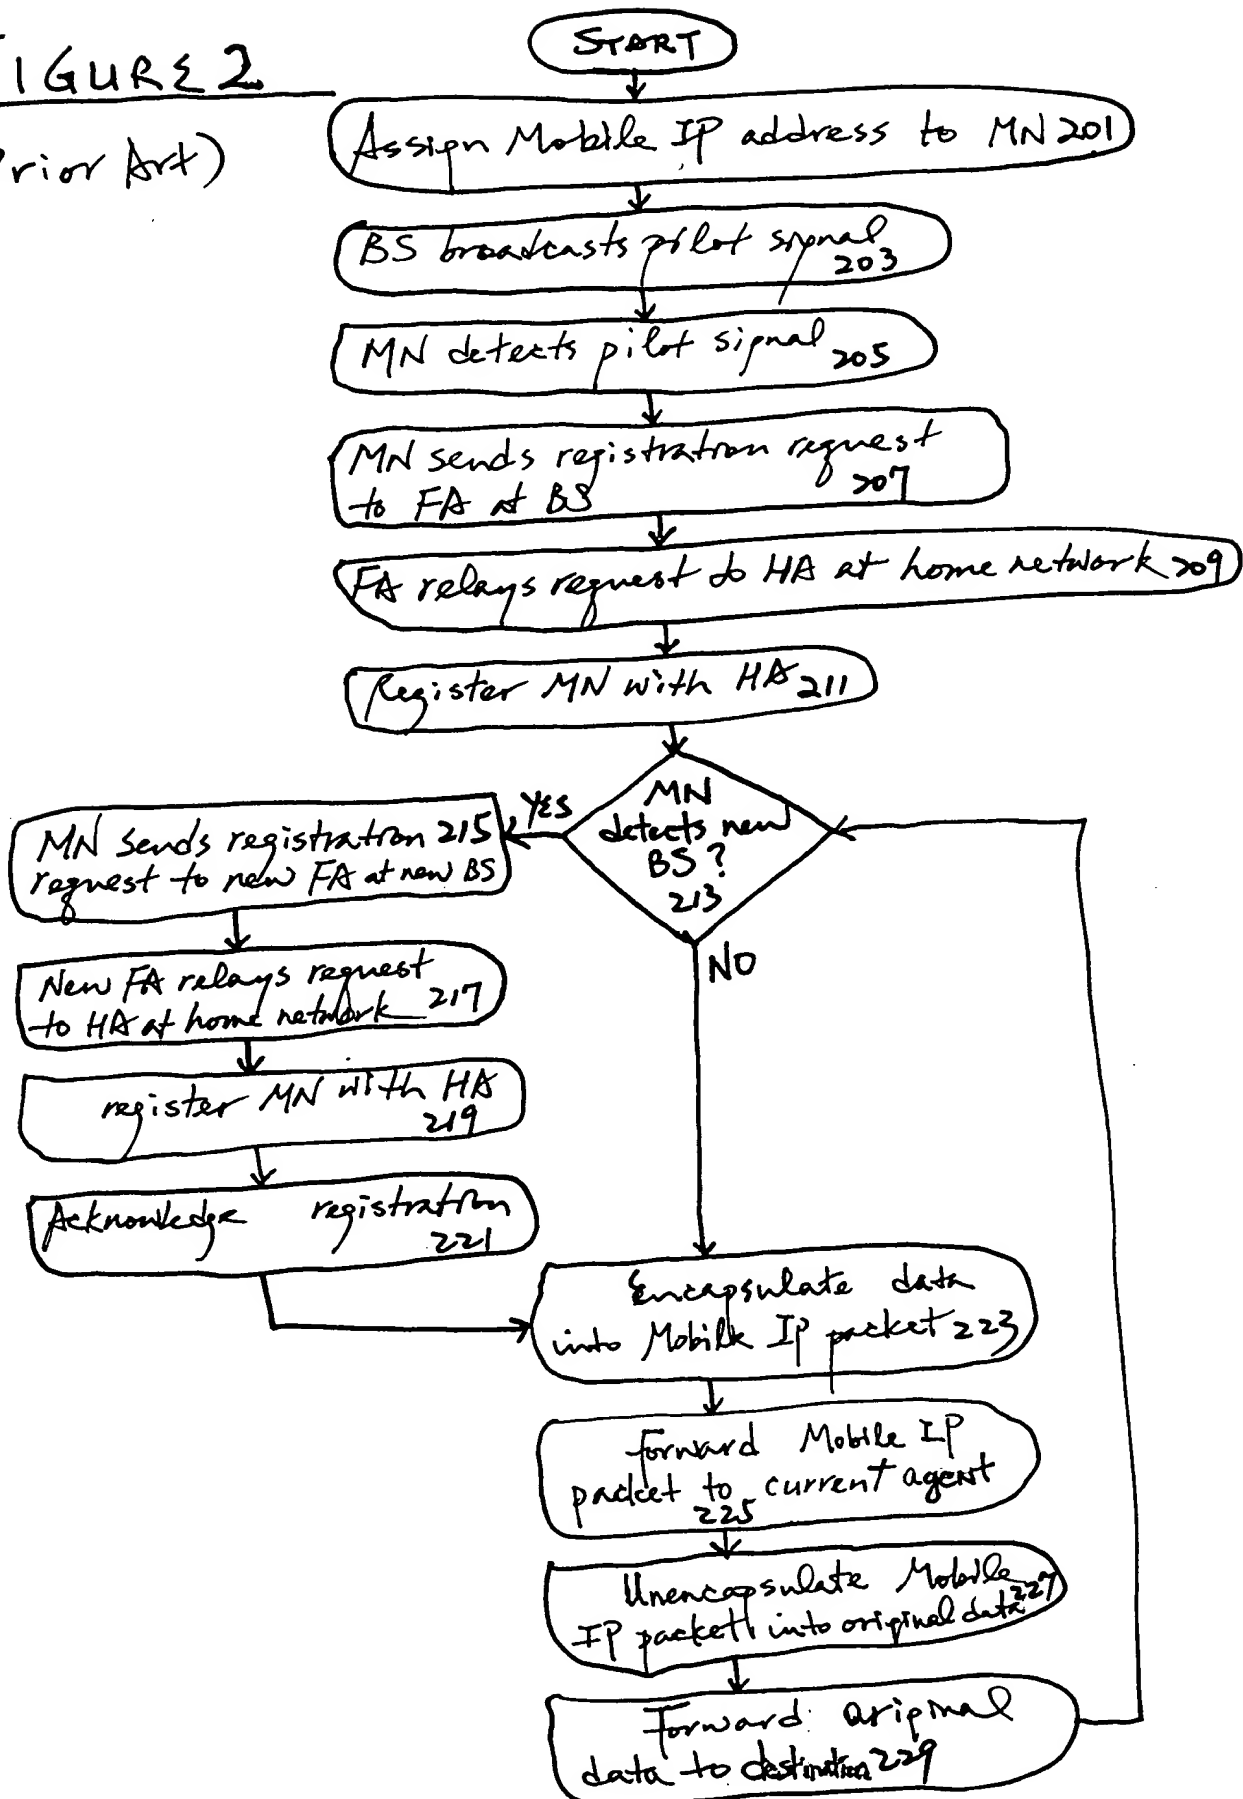 IGURE 2
rior Art)
START
Assign Mobile IP address to MN 201
BS broadcasts pilot signal
203
MN detects pilot signal 205
MN sends registration request
to FA at BS 207
FA relays request to HA at home network 209
Register MN with HA 211
MN
detects new
BS?
213
YES
NO
MN sends registration 215
request to new FA at new BS
New FA relays request
to HA at home network 217
register MN with HA
219
Acknowledge registration
221
Encapsulate data
into Mobile IP packet 223
forward Mobile IP
packet to current agent
225
Unencapsulate Mobile 227
IP packet into original data
Forward original
data to destination 229